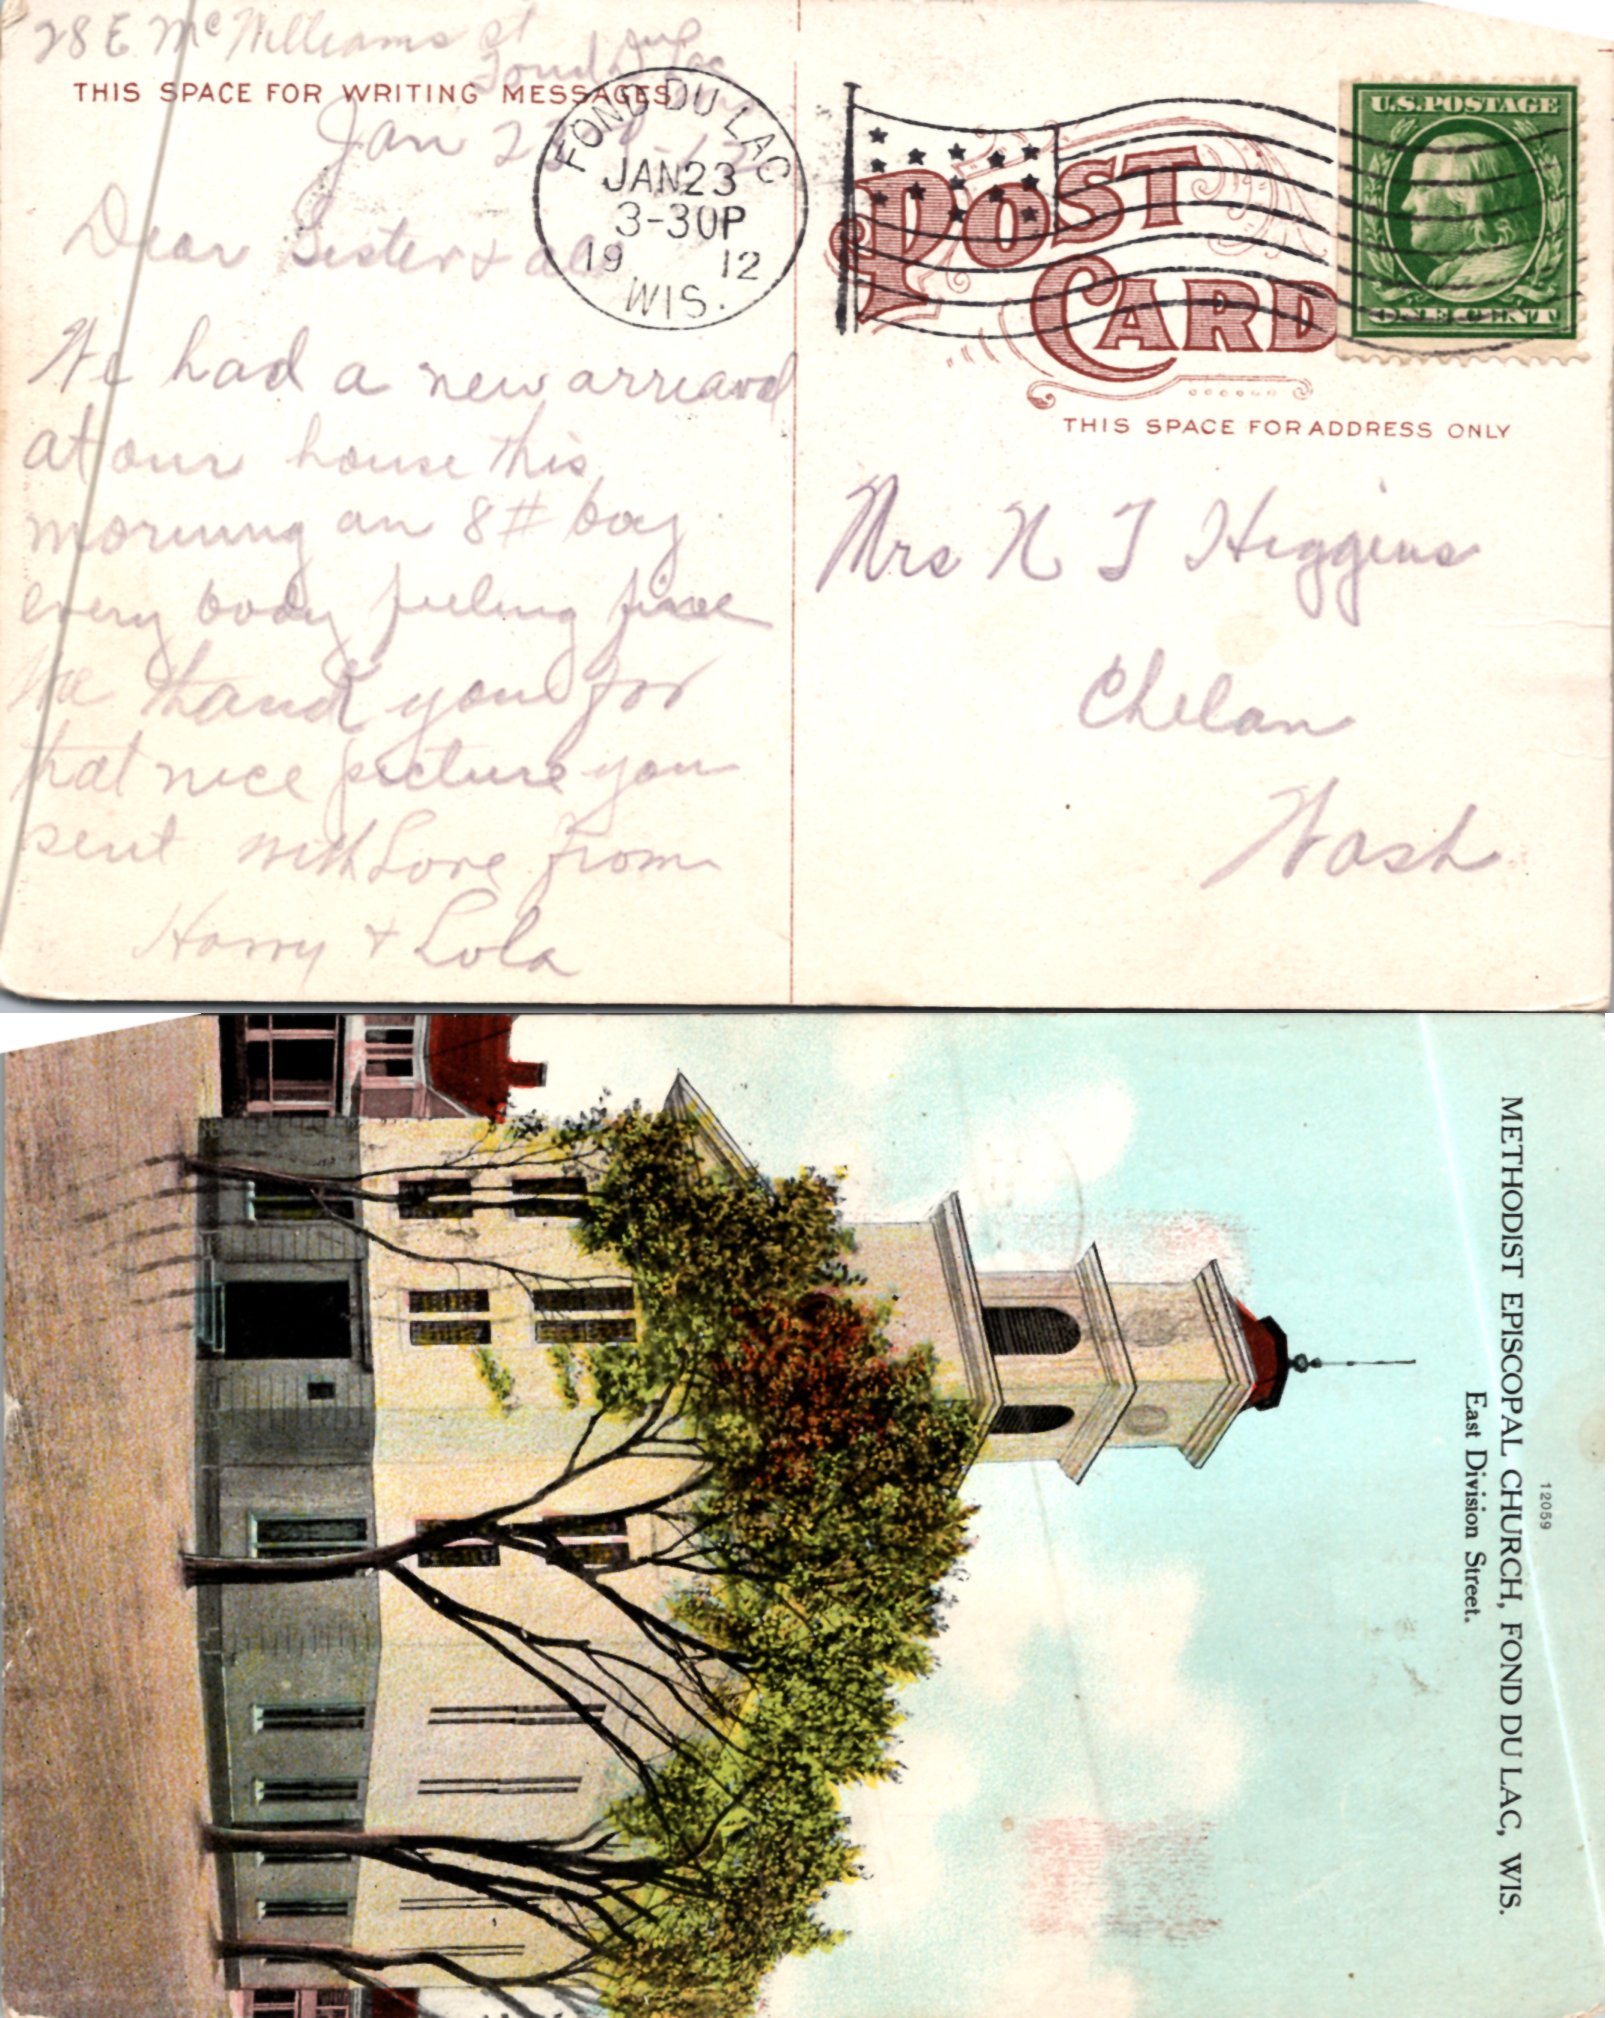 28 E. Mc Williams st
Fond du Lac
THIS SPACE FOR WRITING MESSAGES
Jan 23
Dear Sister & all
We had a new arrieavd
at our house this
morning an 8# boy
every body feeling fine
We thank you for
that nice picture you
sent with Love from
Harry & Lola
FOND DU LAC
JAN 23
3-30P
19 12
WIS.
POST
CARD
U.S. POSTAGE
ONE CENT
THIS SPACE FOR ADDRESS ONLY
Mrs N T Higgins
Chelan
Wash
12059
METHODIST EPISCOPAL CHURCH, FOND DU LAC, WIS.
East Division Street.